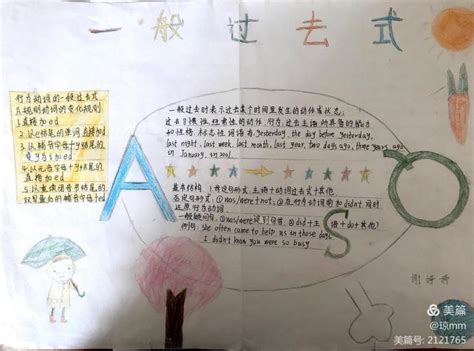 一般过去式
行为动词的一般过去式
A.规则动词的变化规则
1.直接加ed
2.以e结尾的单词直接加d
3.以辅音字母+y结尾的
变y为i加ed
4.以元音字母+y结尾的
直接加ed
5.以重读闭音节结尾的
双写最后的辅音字母+ed
一般过去时表示过去某个时间里发生的动作或状态;
过去习惯性、经常性的动作、行为;过去主语所具备的能力
和性格.标志性词语有yesterday, the day before yesterday,
last night, last week, last month, last year, two days ago, three years ago
in January, in 2001.
A
基本结构:肯定句形式:主语+动词过去式+其他.
否定句形式:①was/were+not;②在行为动词前加didn't同时
还原行为动词
一般疑问句:①was/were提到句首;②did+主语+do+其他?
例句: she often came to help us in those days.
I didn't know you were so busy.
S
美篇
@琼mm
美篇号: 2121765